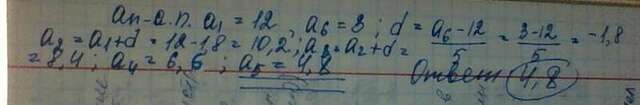 an - а.п. a₁ = 12, a₆ = 3; d = (a₆ - 12)/5 = (3 - 12)/5 = -1,8
a₂ = a₁ + d = 12 - 1,8 = 10,2; a₃ = a₂ + d =
= 8,4; a₄ = 6,6; a₅ = 4,8 Ответ 4,8